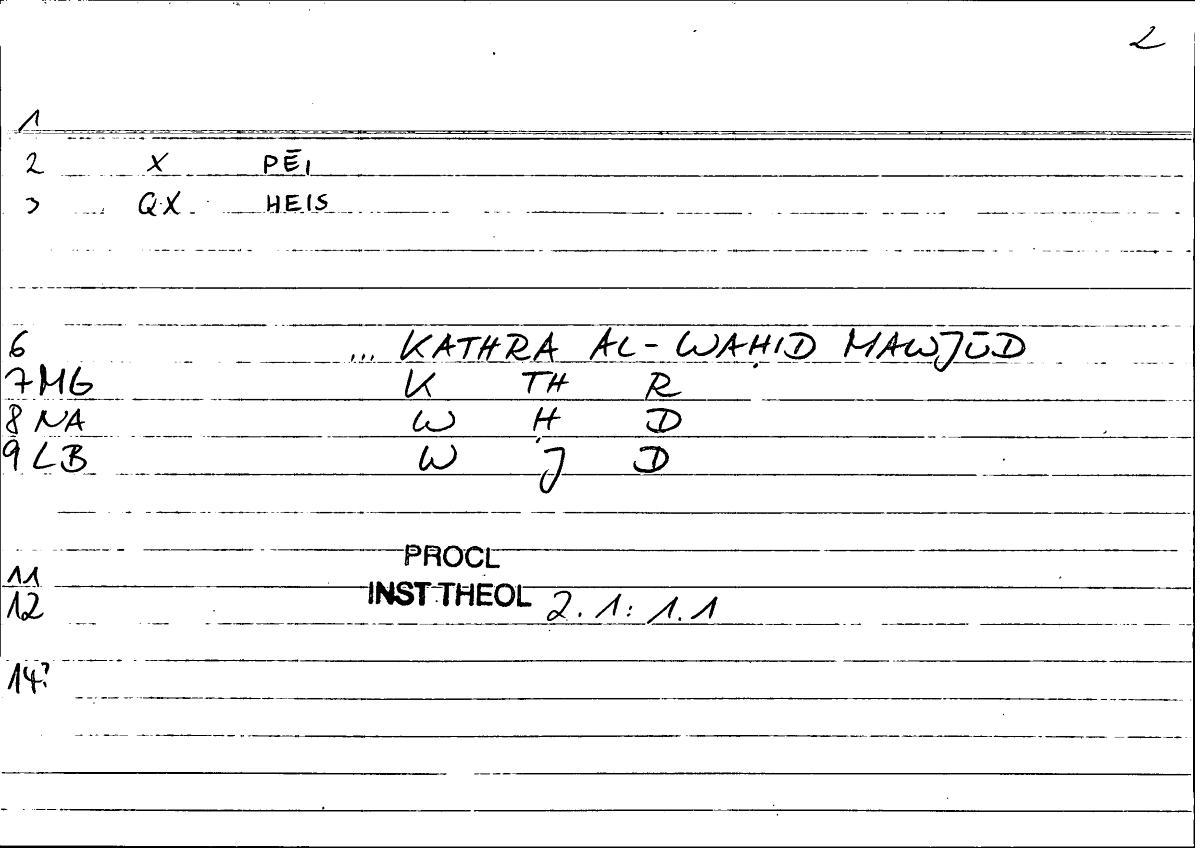 2
1
2 X PĒI
3 QX HEIS
6 ... KATHRA AL-WĀḤID MAWJŪD
7 MG K TH R
8 NA W Ḥ D
9 LB W J D
PROCL
11
INST THEOL 2.1: 1.1
12
14?